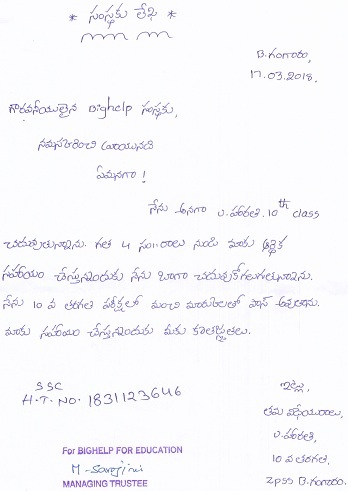 * సంస్థకు లేఖ *
B.గంగారం,
17.03.2018.
గౌరవనీయులైన Bighelp సంస్థకు,
నమస్కరించి వ్రాయునది
ఏమనగా!
నేను అనగా U.హారతి. 10th class
చదువుతున్నాను. గత 4 సం॥రాలు నుండి మాకు ఆర్థిక
సహాయం చేస్తున్నందుకు నేను బాగా చదువుకోగలుగుతున్నాను.
నేను 10 వ తరగతి పరీక్షలో మంచి మార్కులతో పాస్ అవుతాను.
మాకు సహాయం చేస్తున్నందుకు మీకు కృతజ్ఞతలు.
SSC
H.T. NO. 1831123646
ఇట్లు,
తమ విధేయురాలు,
U.హారతి,
10 వ తరగతి,
ZPSS B.గంగారం.
For BIGHELP FOR EDUCATION
MANAGING TRUSTEE